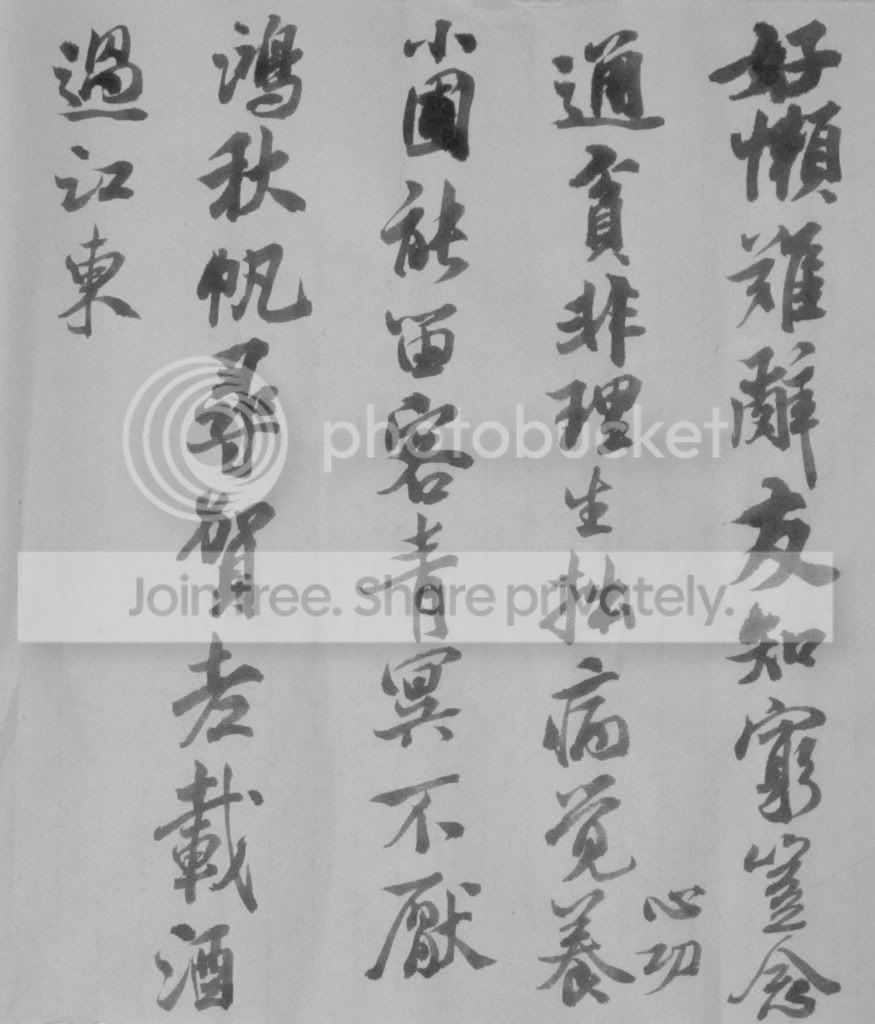 好懶難辭友知窮豈念
通貧非理生拙病覺養
心功
小圃能留客青冥不厭
鴻秋帆尋賀老載酒
過江東
photobucket
Join free. Share privately.